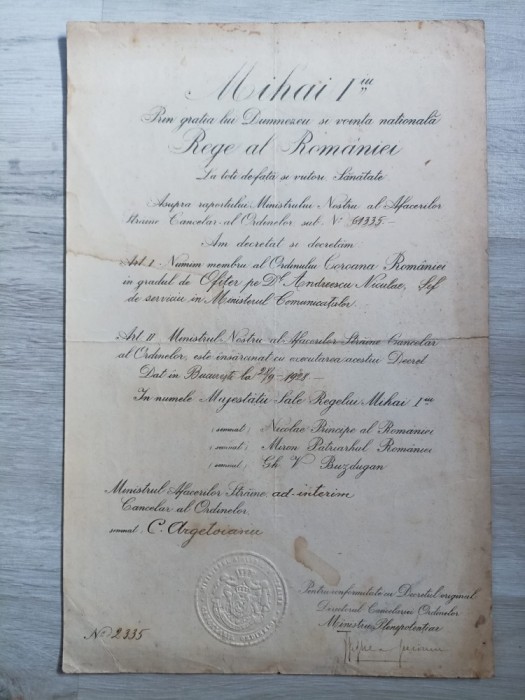 Mihai I iu
Prin gratia lui Dumnezeu si vointa natională
Rege al României
La toti de fată si viitori Sănătate
Asupra raportului Ministrului Nostru al Afacerilor
Străine Cancelar al Ordinelor sub N° 61335 –
Am decretat si decretăm
Art. I Numim membru al Ordinului Coroana României
in gradul de Ofiter pe Dl Andreescu Niculae, Sef
de serviciu in Ministerul Comunicatiilor
Art. II Ministrul Nostru al Afacerilor Străine Cancelar
al Ordinelor, este insărcinat cu executarea acestui Decret
Dat in Bucuresti la 21/9 - 1928 –
In numele Majestătii Sale Regelui Mihai I iu
(semnat) Nicolae Principe al României
(semnat) Miron Patriarhul României
(semnat) Gh V Buzdugan
Ministrul Afacerilor Străine ad-interim
Cancelar al Ordinelor,
semnat C. Argetoianu
Pentru conformitate cu Decretul original
Directorul Cancelariei Ordinelor
Ministru Plenipotentiar
N° 2335